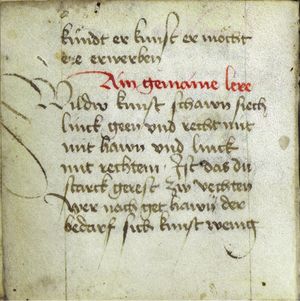 kündt er kunst er möcht
ere erwerben
Ain gemaine lere
Wildw kunst schawn siech
linck geen und recht mit
mit hawn und linck
mit rechtem Ist das du
starck gerest zw vechten
Wer nach get hawn der
bedarf sich kunst wenig